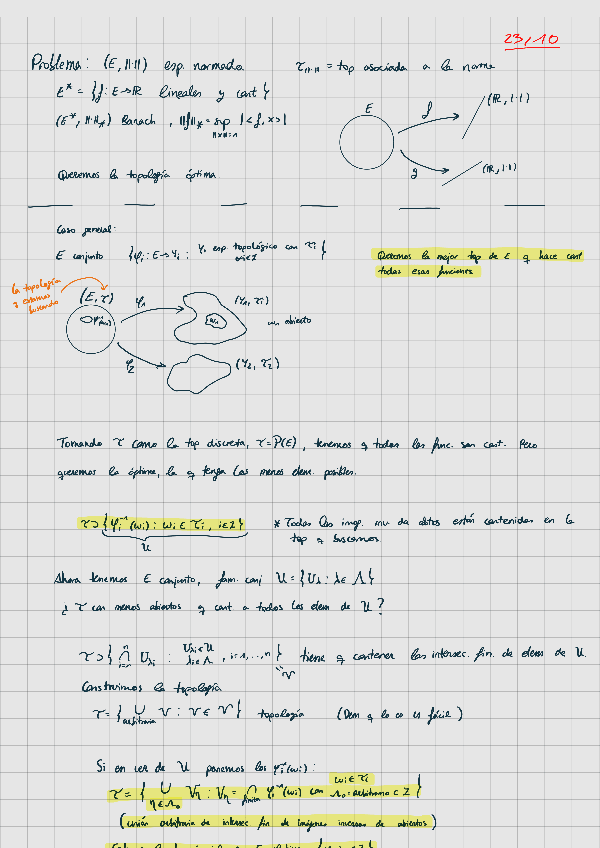 23/10
Problema: (E, ||·||) esp. normado τ_||·|| = top asociada a la norma
E* = {f: E→ℝ lineales y cont}
(E*, ||·||*) Banach, ||f||* = sup_{||x||=1} |<f, x>|
E f (ℝ, |·|)
g (ℝ, |·|)
Queremos la topología óptima
Caso general:
E conjunto {φi: E→Yi : Yi esp. topológico con τi ∀i∈I}
Queremos la mejor top de E q hace cont
todas esas funciones
la topología
q estamos
buscando
(E, τ) φ1 (Y1, τ1)
w1 un abierto
φ2 (Y2, τ2)
Tomando τ como la top discreta, τ=P(E), tenemos q todas las func. son cont. Pero
queremos la óptima, la q tenga los menos elem. posibles.
τ⊃{φi⁻¹(wi) : wi∈τi, i∈I} * Todas las imag. inv de abtos están contenidas en la
U top q buscamos
Ahora tenemos E conjunto, fam. conj U = {Uλ : λ∈Λ}
¿ τ con menos abiertos q cont a todos los elem de U?
τ⊃{⋂_{i=1}^n U_λi : U_λi∈U λi∈Λ, i=1,...,n} tiene q contener las intersec. fin. de elem de U.
=V
Construimos la topología
τ = {⋃_arbitraria V : V∈V} topología (Dem q lo es es fácil)
Si en vez de U ponemos los φi⁻¹(wi):
τ = {⋃_{η∈Λ0} Vη : Vη = ⋂_finita φi⁻¹(wi) con wi∈τi Λ0 = arbitrario ⊂ I}
(unión arbitraria de intersec fin de imágenes inversas de abiertos)